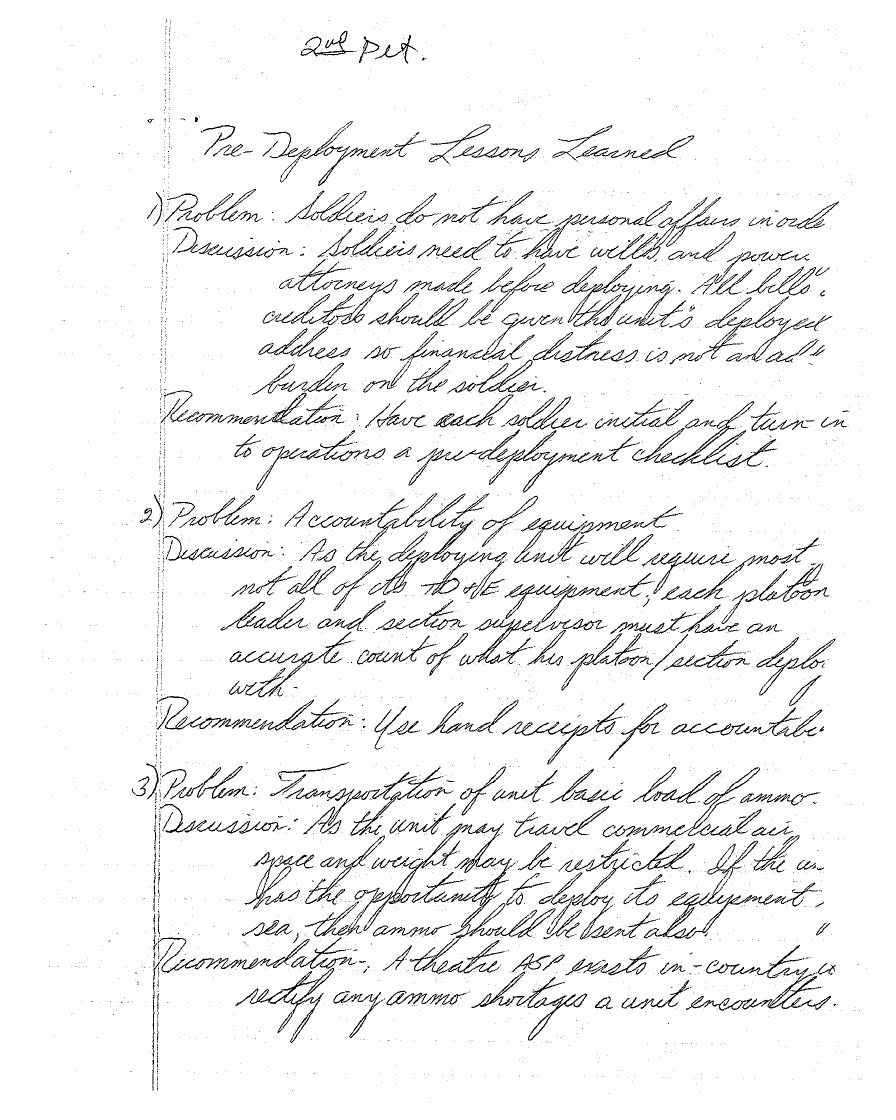 2nd Det.
Pre-Deployment Lessons Learned
1) Problem: Soldiers do not have personal affairs in orde
Discussion: Soldiers need to have wills, and power
attorneys made before deploying. All bills
creditors should be given the unit's deployed
address so financial distress is not an ad
burden on the soldier.
Recommendation: Have each soldier initial and turn-in
to operations a pre-deployment checklist.
2) Problem: Accountability of equipment
Discussion: As the deploying unit will require most
not all of its TO&E equipment, each platoon
leader and section supervisor must have an
accurate count of what his platoon/section deploy
with.
Recommendation: Use hand receipts for accountabi
3) Problem: Transportation of unit basic load of ammo.
Discussion: As the unit may travel commercial air,
space and weight may be restricted. If the un
has the opportunity to deploy its equipment
sea, then ammo should be sent also.
Recommendation: A theatre ASP exists in-country
rectify any ammo shortages a unit encounters.